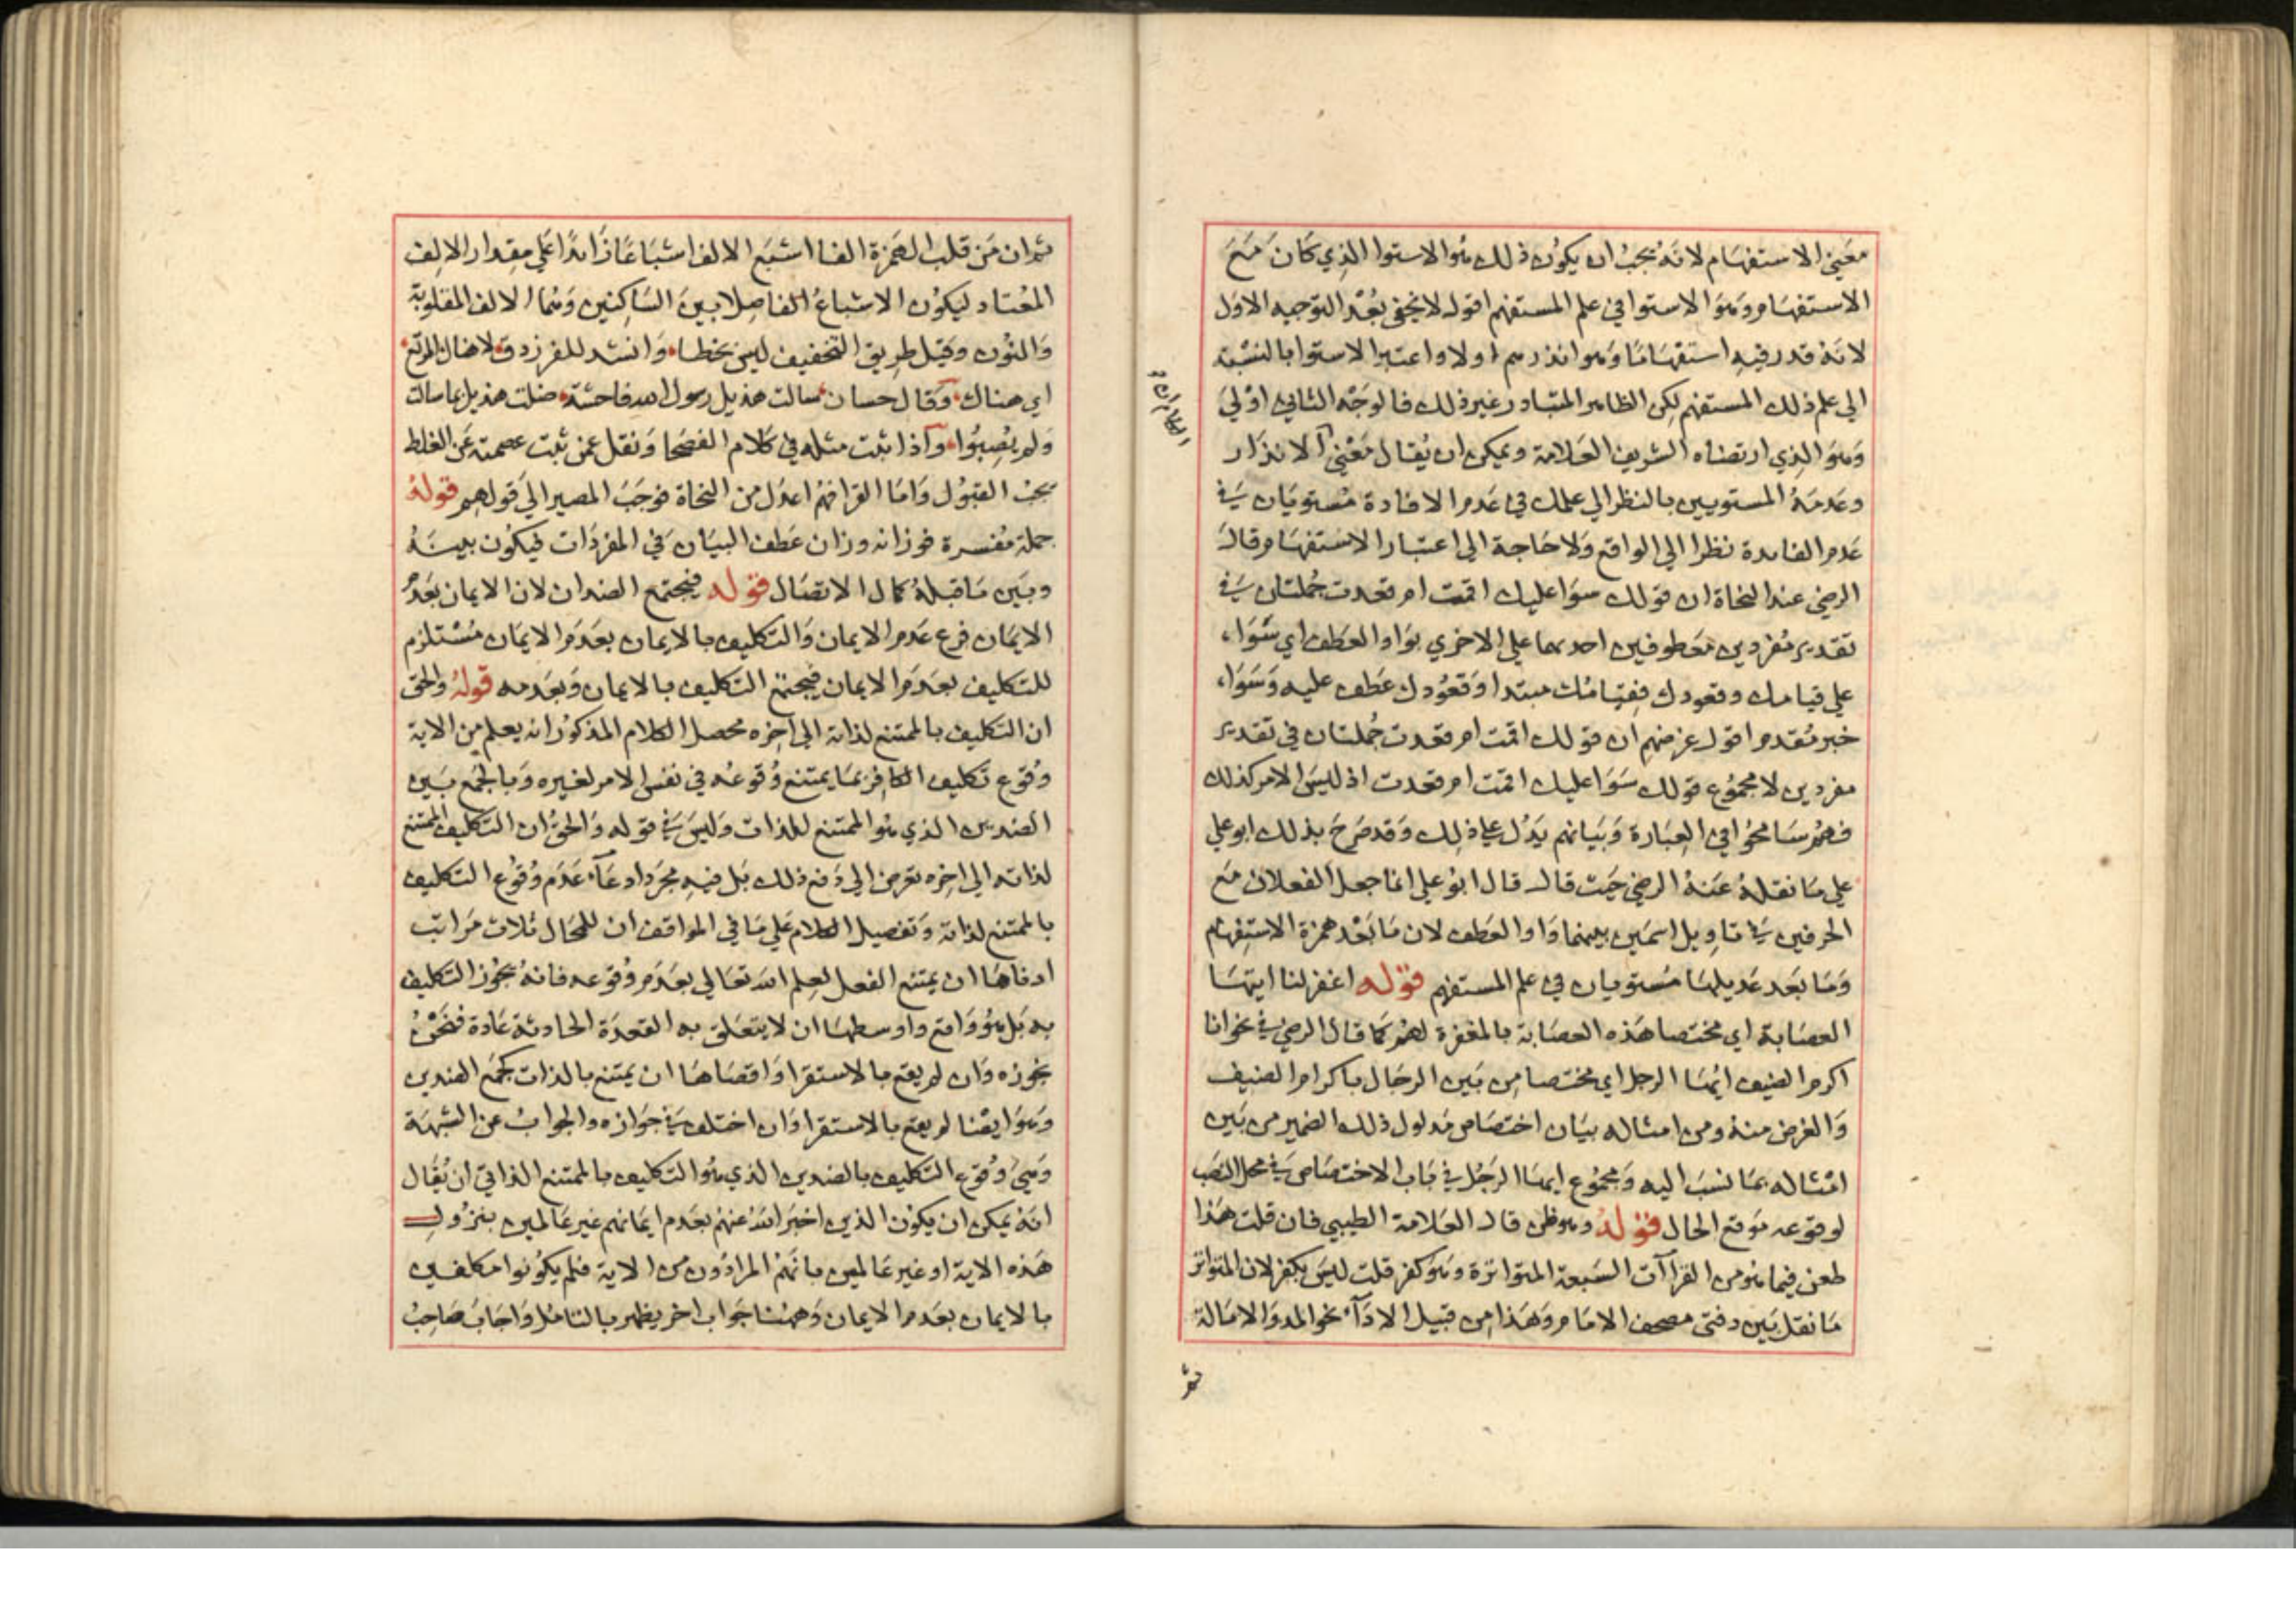 معني الاستفهام لانه يجب ان يكون ذلك هو الاستوا الذي كان مع
الاستفهام وهو الاستوا في علم المستفهم اقول لا يخفى بعد التوجيه الاول
لانه قدر فيه استفهاما وهو انذرتهم اولا واعتبر الاستوا بالنسبة
الي علم ذلك المستفهم لكن الظاهر المتبادر غير ذلك فالوجه الثاني اولي
وهو الذي ارتضاه الشريف العلامة ويمكن ان يقال معني الانذار
وعدمه المستويين بالنظر الي علمك في عدم الافادة مستويان في
عدم الفايدة نظرا الي الواقع ولا حاجة الي اعتبار الاستفهام قال
الرضي عند النحاة ان قولك سوا عليك اقمت ام قعدت جملتان في
تقدير مفردين معطوفين احديهما علي الاخري بواو العطف اي سواء
علي قيامك وقعودك فقيامك مبتدا وقعودك عطف عليه وسواء
خبر مقدم اقول غرضهم ان قولك اقمت ام قعدت جملتان في تقدير
مفردين لا مجموع قولك سوا عليك اقمت ام قعدت اذ ليس الامر كذلك
فهم سامحوا في العبارة وبيانهم يدل علي ذلك وقد صرح بذلك ابو علي
علي ما نقله عنه الرضي حيث قال قال ابو علي انما جعل الفعلان مع
الحرفين في تاويل اسمين بينهما واو العطف لان ما بعد همزة الاستفهام
وما بعد عديلها مستويان في علم المستفهم قوله اغفر لنا ايتها
العصابة اي مختصا هذه العصابة بالمغفرة لهم كما قال الرضي في نحو انا
اكرم الضيف ايها الرجل اي مختصا من بين الرجال باكرام الضيف
والغرض منه ومن امثاله بيان اختصاص مدلول ذلك الضمير من بين
امثاله بما نسب اليه ومجموع ايها الرجل في باب الاختصاص في محل النصب
لوقوعه موقع الحال قوله وهو ظن قال العلامة الطيبي فان قلت هذا
طعن فيما هو من القراآت السبعة المتواترة وهو كفر قلت ليس بكفر لان المتواتر
ما نقل بين دفتي مصحف الامام وهذا من قبيل الاداء نحو المد والامالة
ثم
ثم ان من قلب الهمزة الفا اشبع الالف اشباعا زائدا علي مقدار الالف
المعتاد ليكون الاشباع الفاصلا بين الساكنين وهما الالف المقلوبة
والنون وقيل طريق التخفيف ليس بخطا وانشد للفرزدق لا هناك المرتع
اي هناك وقال حسان سالت هذيل رسول الله فاحشة ضلت هذيل بما سالت
ولم يصبوا واذا ثبت مثله في كلام الفصحا ونقل عمن ثبت عصمته عن الغلط
يجب القبول واما القرا فهم اعدل من النحاة فوجب المصير الي قولهم قوله
جملة مفسرة فوزانه وزان عطف البيان في المفردات فيكون بينه
وبين ما قبله كمال الاتصال قوله فيجتمع الضدان لان الايمان بعدم
الايمان فرع عدم الايمان والتكليف بالايمان بعدم الايمان مستلزم
للتكليف بعدم الايمان فيجتمع التكليف بالايمان وبعدمه قوله والحق
ان التكليف بالممتنع لذاته الي اخره محصل الكلام المذكور انه يعلم من الاية
وقوع تكليف الكافر بما يمتنع وقوعه في نفس الامر لغيره وبالجمع بين
الضدين الذي هو الممتنع للذات وليس في قوله والحق ان التكليف بالممتنع
لذاته الي اخره تعرض الي دفع ذلك بل فيه مجرد ادعاء عدم وقوع التكليف
بالممتنع لذاته وتفصيل الكلام علي ما في المواقف ان للمحال ثلاث مراتب
ادناها ان يمتنع الفعل لعلم الله تعالي بعدم وقوعه فانه يجوز التكليف
به بل هو واقع واوسطها ان لا يتعلق به القدرة الحادثة عادة فنحن
نجوزه وان لم يقع بالاستقرا واقصاها ان يمتنع بالذات كجمع الضدين
وهو ايضا لم يقع بالاستقرا وان اختلف في جوازه والجواب عن الشبهة
وهي وقوع التكليف بالضدين الذي هو التكليف بالممتنع الذاتي ان يقال
انه يمكن ان يكون الذين اخبر الله عنهم بعدم ايمانهم غير عالمين بنزول
هذه الاية او غير عالمين بانهم المرادون من الاية فلم يكونوا مكلفين
بالايمان بعدم الايمان وههنا جواب اخر يظهر بالتامل واجاب صاحب